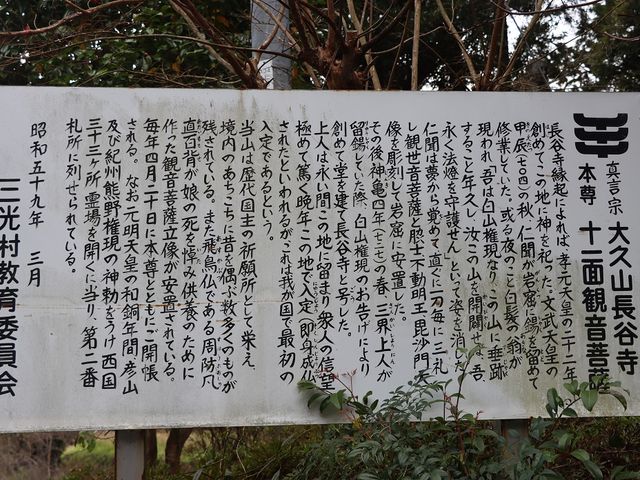 真言宗 大久山長谷寺
本尊 十一面観音菩薩
長谷寺縁起によれば、孝元天皇の二十二年
創めてこの地に神を祀った。文武天皇の
甲辰(七〇四)の秋、仁聞が岩窟に錫を留めて
修業していた。或る夜のこと白髪の翁が
現われ「吾は白山権現なり、この山に垂跡
すること年久し、汝この山を開闢せよ、吾、
永く法燈を守護せん」といって姿を消した。
仁聞は夢から覚めて、直ぐに一刀毎に三礼
し観世音菩薩と脇士不動明王、毘沙門天
像を彫刻して岩窟に安置した。
その後神亀四年(七二七)の春、三界上人が
留錫していた際、白山権現のお告げにより
創めて堂を建て長谷寺と号した。
上人は永い間この地に留まり衆人の信望
極めて篤く晩年この地で入定、即身成仏
されたといわれるがこれは我が国で最初の
入定であるという。
当山は歴代国主の祈願所として栄え、
境内のあちこちに昔を偲ぶ数多くのものが
残されている。また飛鳥仏である周防凡
直百背が娘の死を悼み供養のために
作った観音菩薩立像が安置されている。
毎年四月二十日に本尊とともにご開帳
される。なお元明天皇の和銅年間彦山
及び紀州熊野権現の神勅をうけ西国
三十三ヶ所霊場を開くに当り、第二番
札所に列せられている。
昭和五十九年 三月
三光村教育委員会